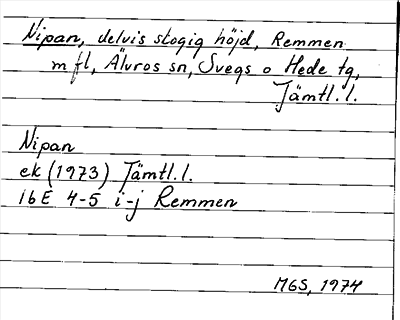 Nipan, delvis skogig höjd, Remmen
m fl, Älvros sn, Svegs o Hede tg,
Jämtl. l.
Nipan
ek (1973) Jämtl. l.
16E 4-5 i-j Remmen
MGS, 1974